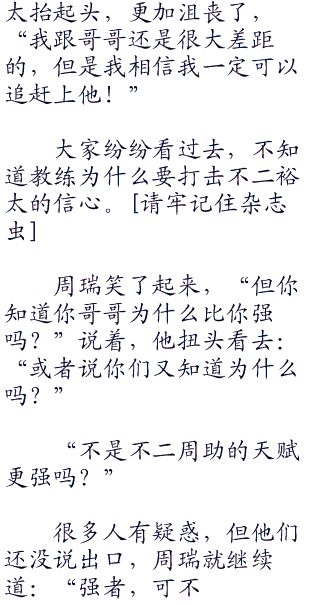 太抬起头，更加沮丧了，
“我跟哥哥还是很大差距
的，但是我相信我一定可以
追赶上他！”
大家纷纷看过去，不知
道教练为什么要打击不二裕
太的信心。[请牢记住杂志
虫]
周瑞笑了起来，“但你
知道你哥哥为什么比你强
吗？”说着，他扭头看去：
“或者说你们又知道为什么
吗？”
“不是不二周助的天赋
更强吗？”
很多人有疑惑，但他们
还没说出口，周瑞就继续
道：“强者，可不